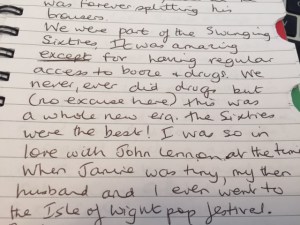 was forever splitting his
trousers.
We were part of the Swinging
Sixties. It was amazing
except for having regular
access to booze & drugs. We
never, ever did drugs but
(no excuse here) this was
a whole new era. The Sixties
were the best! I was so in
love with John Lennon at the time
When Jamie was tiny, my then
husband and I even went to
the Isle of Wight pop festival.